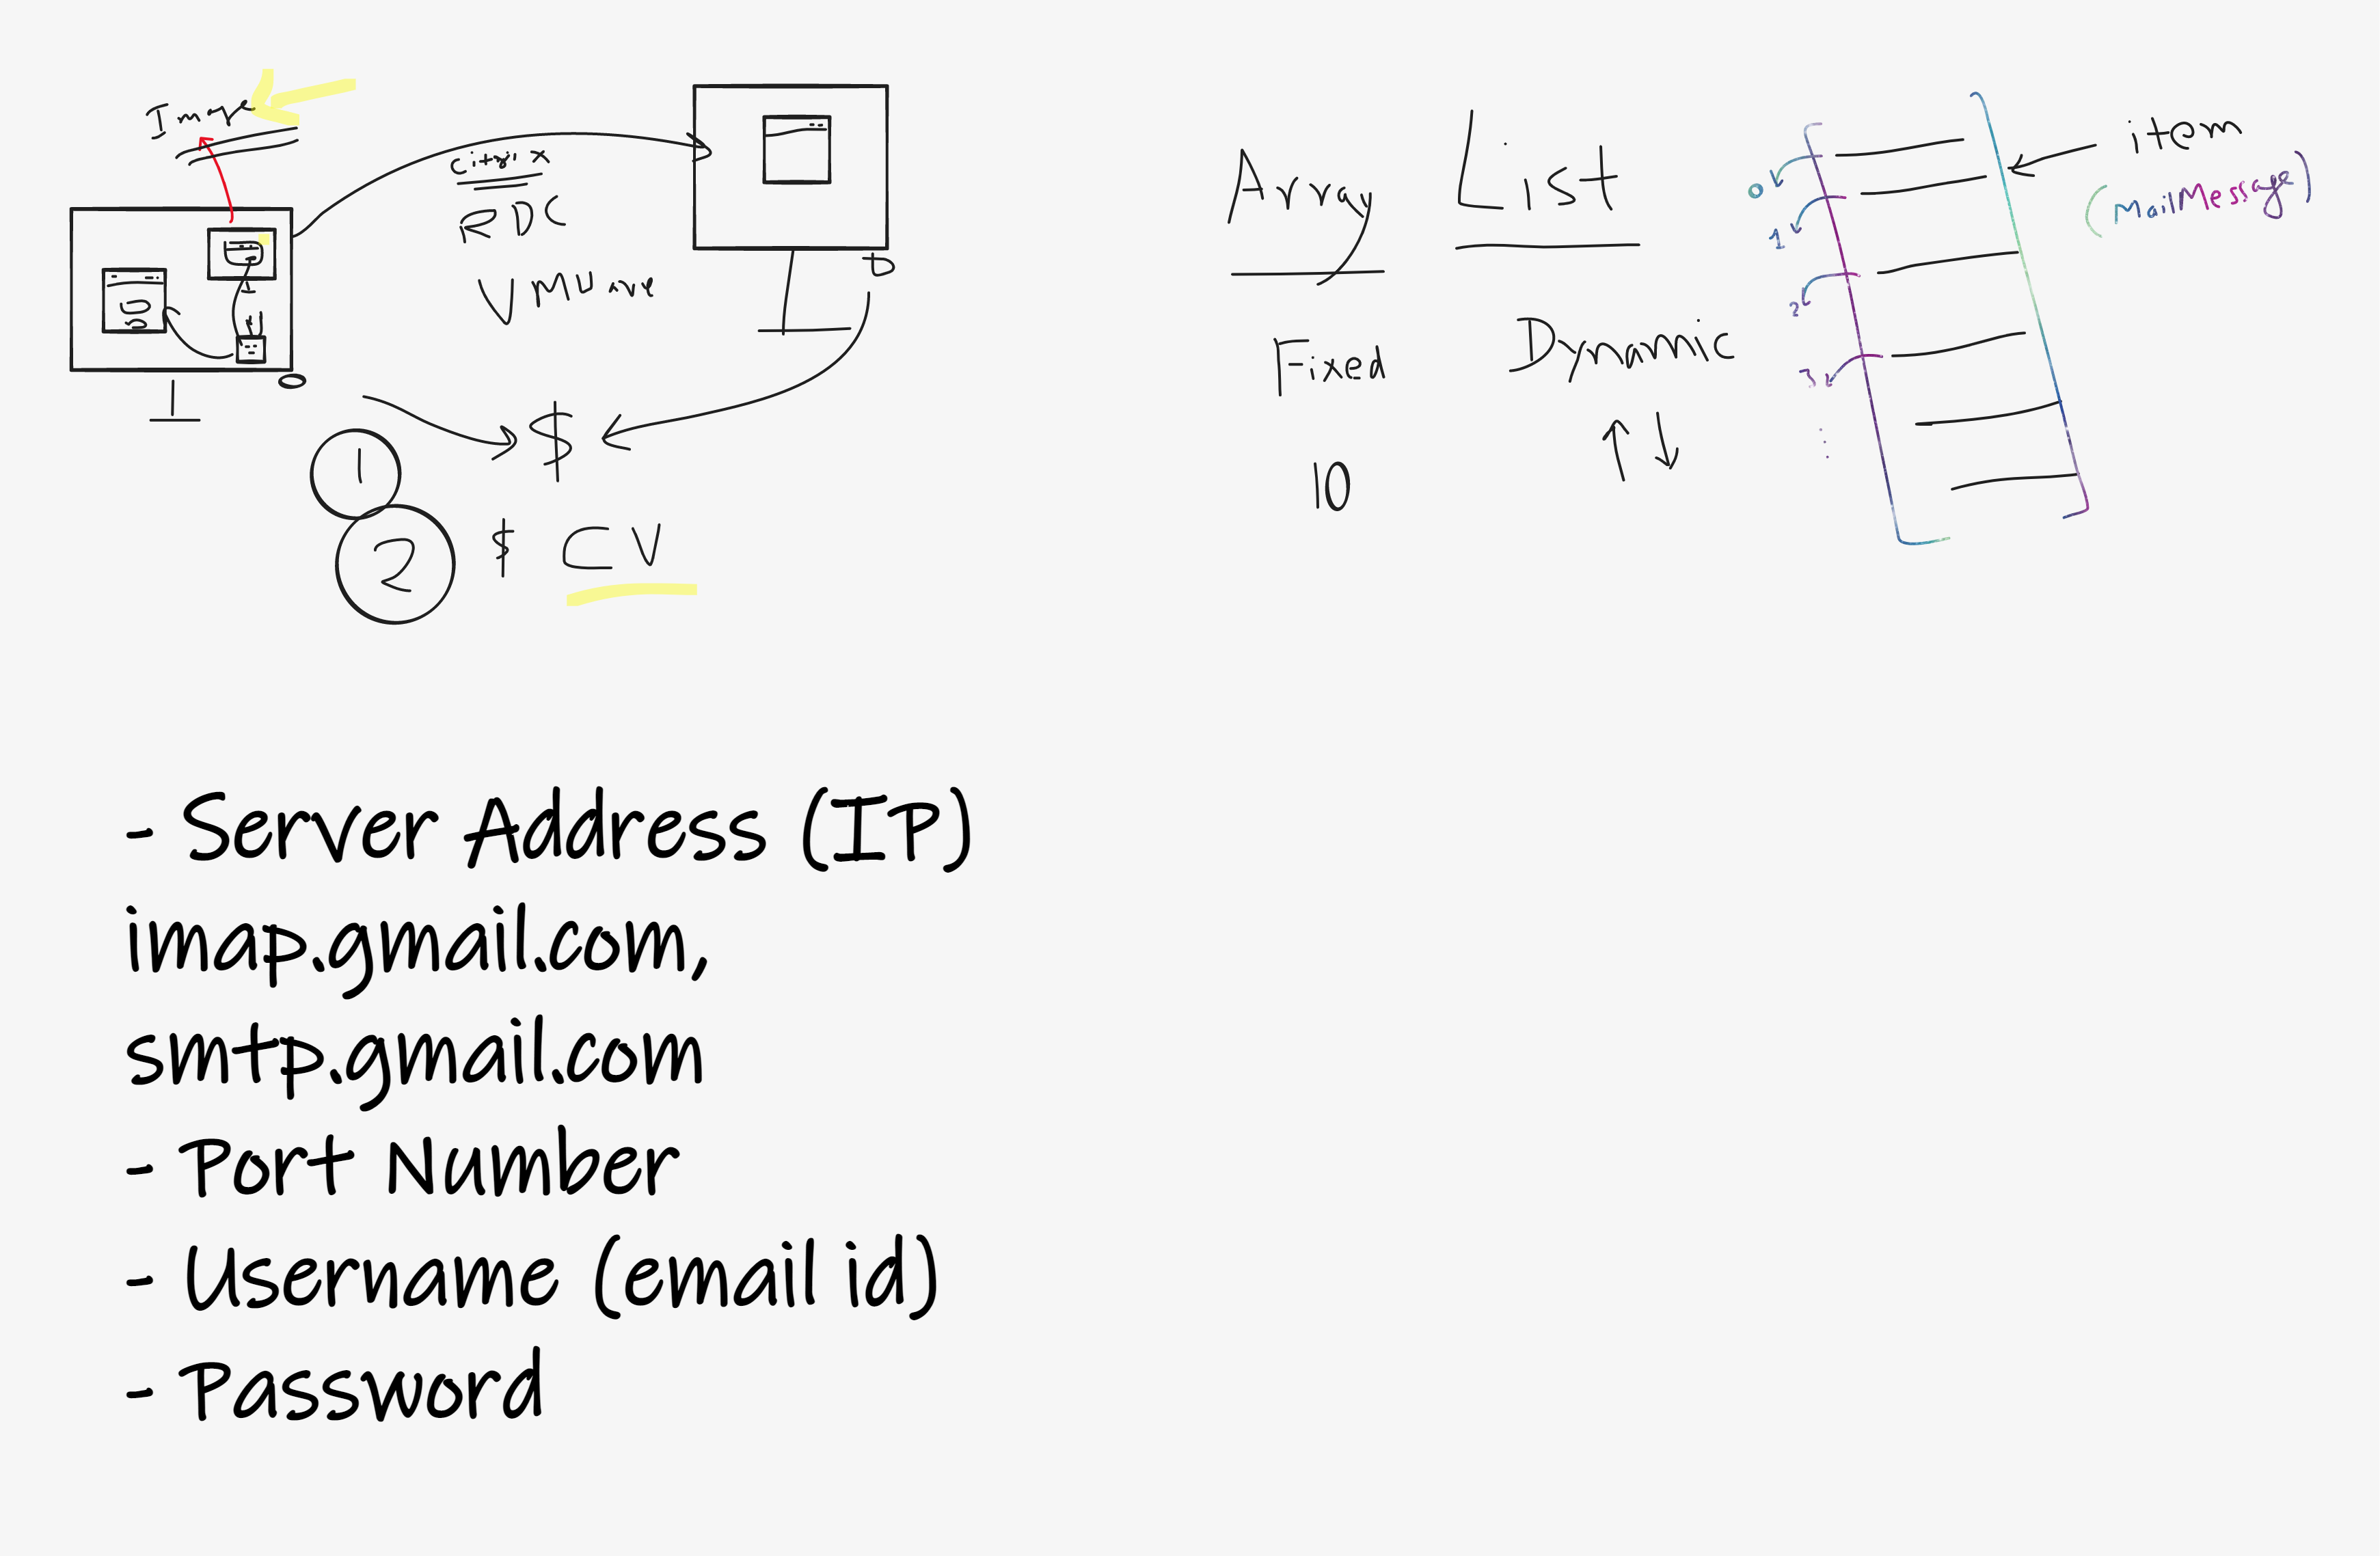 Image
Citrix
RDC
VMware
$
1
2
$ CV
Array
List
Fixed
Dynamic
10
item
(MailMessage)
0
1
2
3
- Server Address (IP)
imap.gmail.com,
smtp.gmail.com
- Port Number
- Username (email id)
- Password